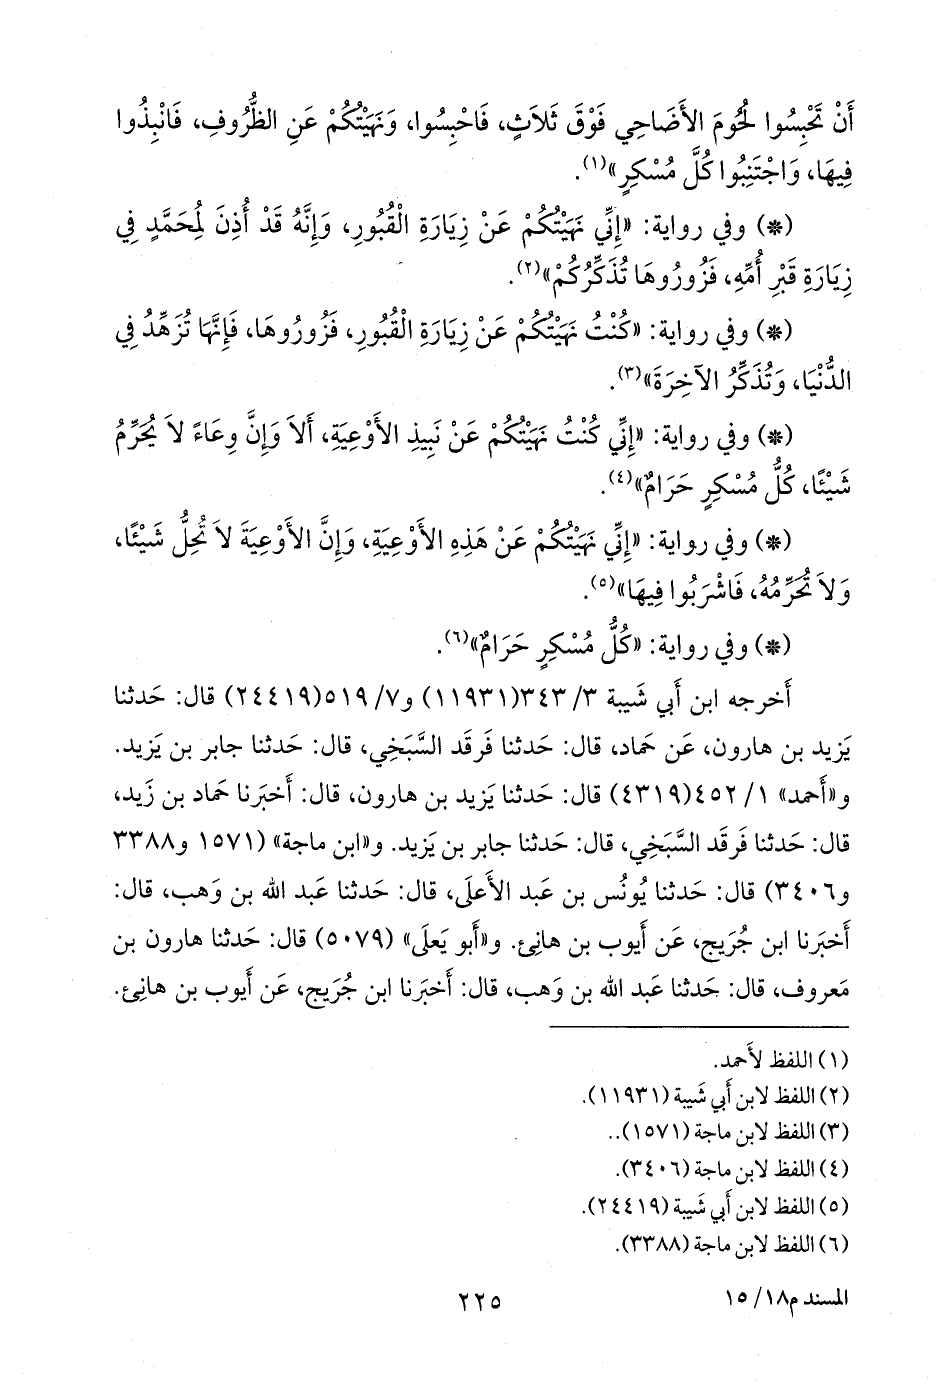 أَنْ تَحْبِسُوا لُحُومَ الأَضَاحِي فَوْقَ ثَلاَثٍ، فَاحْبِسُوا، وَنَهَيْتُكُمْ عَنِ الظُّرُوفِ، فَانْبِذُوا
فِيهَا، وَاجْتَنِبُوا كُلَّ مُسْكِرٍ»(١).
(*) وفي رواية: «إِنِّي نَهَيْتُكُمْ عَنْ زِيَارَةِ الْقُبُورِ، وَإِنَّهُ قَدْ أُذِنَ لِمُحَمَّدٍ فِي
زِيَارَةِ قَبْرِ أُمِّهِ، فَزُورُوهَا تُذَكِّرُكُمْ»(٢).
(*) وفي رواية: «كُنْتُ نَهَيْتُكُمْ عَنْ زِيَارَةِ الْقُبُورِ، فَزُورُوهَا، فَإِنَّهَا تُزَهِّدُ فِي
الدُّنْيَا، وَتُذَكِّرُ الآخِرَةَ»(٣).
(*) وفي رواية: «إِنِّي كُنْتُ نَهَيْتُكُمْ عَنْ نَبِيذِ الأَوْعِيَةِ، أَلاَ وَإِنَّ وِعَاءً لاَ يُحَرِّمُ
شَيْئًا، كُلُّ مُسْكِرٍ حَرَامٌ»(٤).
(*) وفي رواية: «إِنِّي نَهَيْتُكُمْ عَنْ هَذِهِ الأَوْعِيَةِ، وَإِنَّ الأَوْعِيَةَ لاَ تُحِلُّ شَيْئًا،
وَلاَ تُحَرِّمُهُ، فَاشْرَبُوا فِيهَا»(٥).
(*) وفي رواية: «كُلُّ مُسْكِرٍ حَرَامٌ»(٦).
أَخرجه ابن أَبي شَيبة ٣/ ٣٤٣(١١٩٣١) و٧/ ٥١٩(٢٤٤١٩) قال: حَدثنا
يَزيد بن هارون، عَن حَماد، قال: حَدثنا فَرقَد السَّبَخِي، قال: حَدثنا جابر بن يَزيد.
و«أَحمد» ١/ ٤٥٢(٤٣١٩) قال: حَدثنا يَزيد بن هارون، قال: أَخبَرنا حَماد بن زَيد،
قال: حَدثنا فَرقَد السَّبَخِي، قال: حَدثنا جابر بن يَزيد. و«ابن ماجة» (١٥٧١ و٣٣٨٨
و٣٤٠٦) قال: حَدثنا يُونُس بن عَبد الأَعلَى، قال: حَدثنا عَبد الله بن وَهب، قال:
أَخبَرنا ابن جُرَيج، عَن أَيوب بن هانِئ. و«أَبو يَعلَى» (٥٠٧٩) قال: حَدثنا هارون بن
مَعروف، قال: حَدثنا عَبد الله بن وَهب، قال: أَخبَرنا ابن جُرَيج، عَن أَيوب بن هانِئ.
(١) اللفظ لأَحمد.
(٢) اللفظ لابن أَبي شَيبة (١١٩٣١).
(٣) اللفظ لابن ماجة (١٥٧١)..
(٤) اللفظ لابن ماجة (٣٤٠٦).
(٥) اللفظ لابن أَبي شَيبة (٢٤٤١٩).
(٦) اللفظ لابن ماجة (٣٣٨٨).
المسند م١٨/ ١٥
٢٢٥